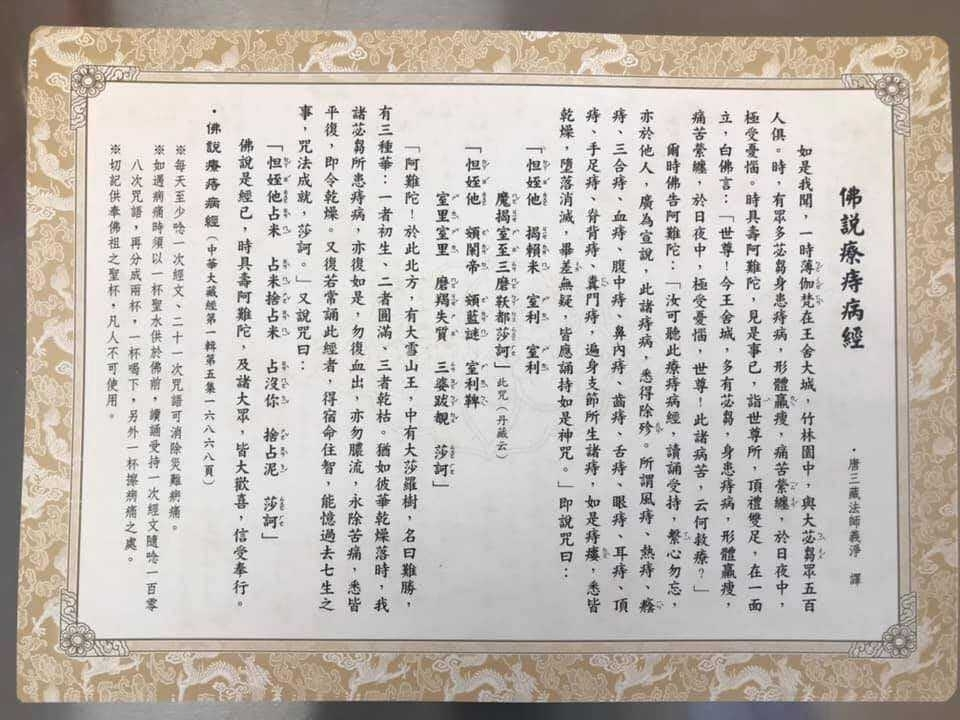 佛說療痔病經
．唐三藏法師義淨　譯
如是我聞，一時薄伽梵在王舍大城，竹林園中，與大苾芻眾五百
人俱。時，有眾多苾芻身患痔病，形體羸瘦，痛苦縈纏，於日夜中，
極受憂惱。時具壽阿難陀，見是事已，詣世尊所，頂禮雙足，在一面
立，白佛言：「世尊！今王舍城，多有苾芻，身患痔病，形體羸瘦，
痛苦縈纏，於日夜中，極受憂惱，世尊！此諸病苦，云何救療？」
爾時佛告阿難陀：「汝可聽此療痔病經，讀誦受持，繫心勿忘，
亦於他人，廣為宣說，此諸痔病，悉得除殄。所謂風痔、熱痔、癊
痔、三合痔、血痔、腹中痔、鼻內痔、齒痔、舌痔、眼痔、耳痔、頂
痔、手足痔、脊背痔、糞門痔，遍身支節所生諸痔，如是痔瘻，悉皆
乾燥，墮落消滅，畢差無疑，皆應誦持如是神咒。」即說咒曰：
「怛姪他　揭賴米　室利　室利
魔揭室至三磨䪡都莎訶」此咒（丹藏云）
「怛姪他　頞闌帝　頞藍謎　室利鞞
室里室里　磨羯失質　三婆跋覩　莎訶」
「阿難陀！於此北方，有大雪山王，中有大莎羅樹，名曰難勝，
有三種華：一者初生、二者圓滿、三者乾枯。猶如彼華乾燥落時，我
諸苾芻所患痔病，亦復如是，勿復血出，亦勿膿流，永除苦痛，悉皆
平復，即令乾燥。又復若常誦此經者，得宿命住智，能憶過去七生之
事，咒法成就，莎訶。」又說咒曰：
「怛姪他占米　占米捨占米　占沒你　捨占泥　莎訶」
佛說是經已，時具壽阿難陀，及諸大眾，皆大歡喜，信受奉行。
．佛說療痔病經（中華大藏經第一輯第五集一六八六八頁）
※每天至少唸一次經文、二十一次咒語可消除災難病痛。
※如遇病痛時須以一杯聖水供於佛前，讀誦受持一次經文隨唸一百零
八次咒語，再分成兩杯，一杯喝下，另外一杯擦病痛之處。
※切記供奉佛祖之聖杯，凡人不可使用。